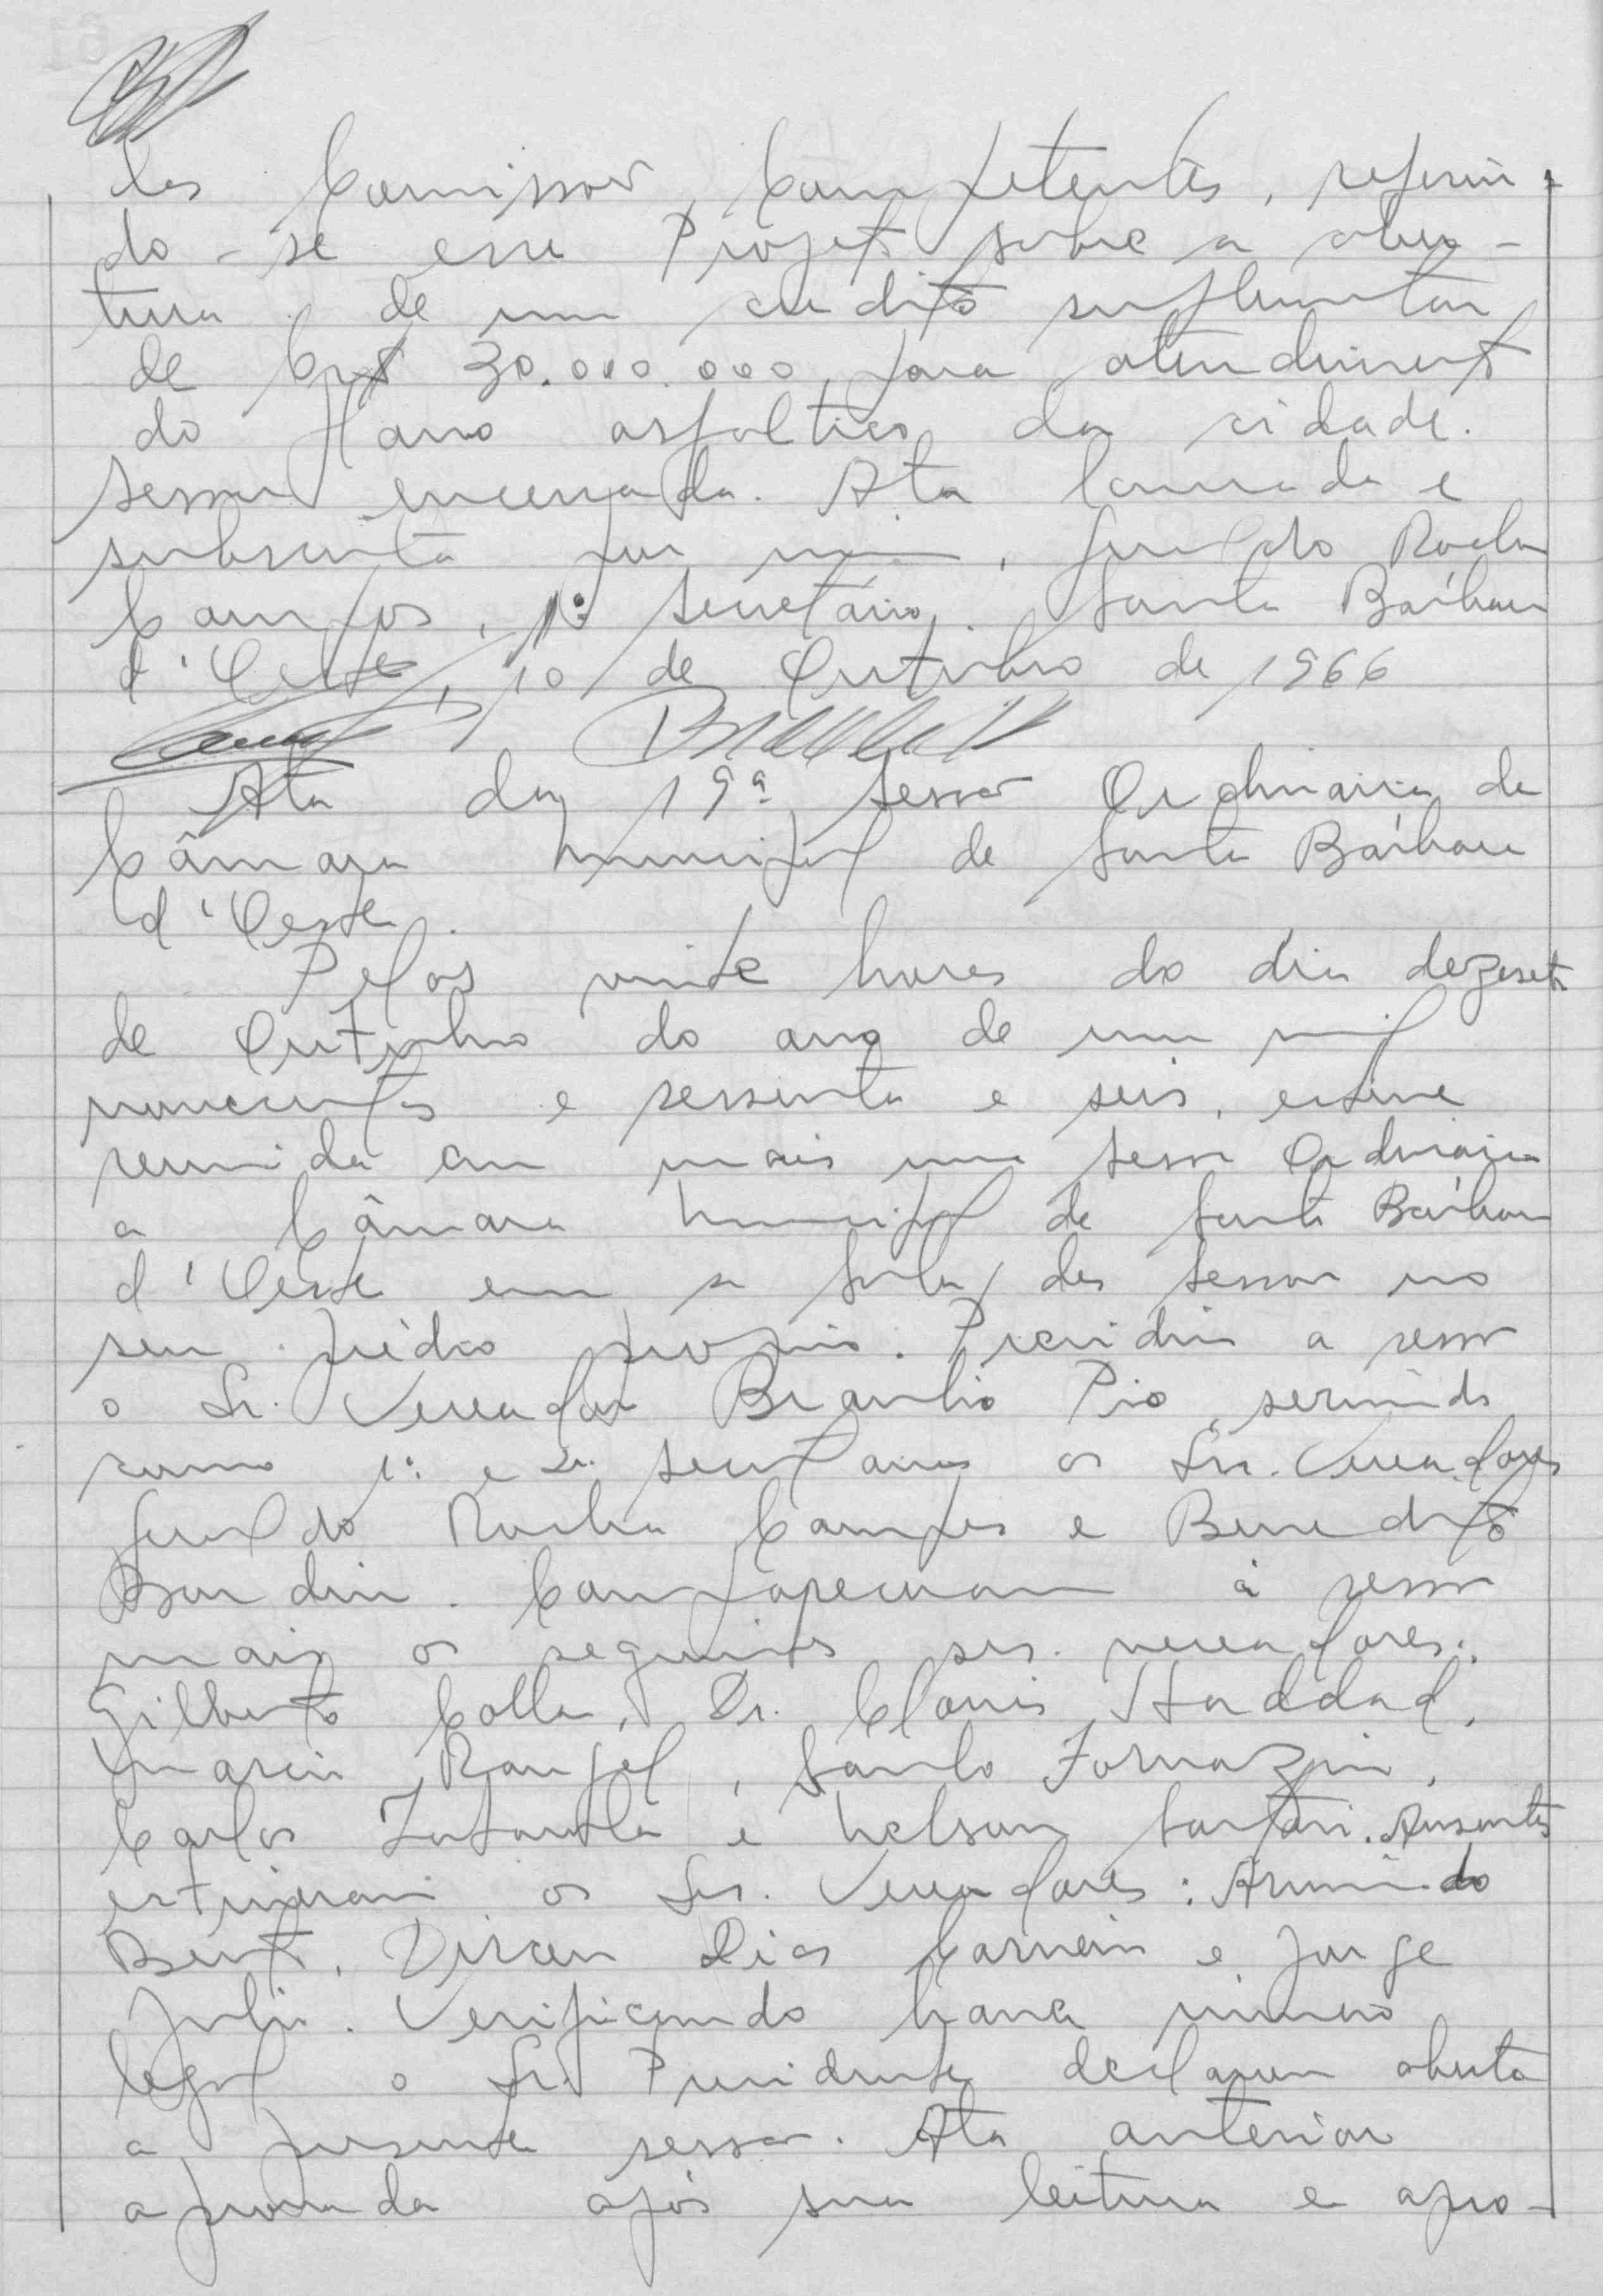 das Comissões Competentes, referin
do-se esse Projeto sobre a aber-
tura de um credito suplementar
de Cr$ 30.000.000, para atendimento
do plano asfaltico da cidade.
Sessão encerrada. Ata lavrada e
subscrita por mim, Geraldo Rocha
Campos, 1º Secretário. Santa Bárbara
d'Oeste, 10 de Outubro de 1966
Ata da 19ª Sessão Ordinária da
Câmara Municipal de Santa Bárbara
d'Oeste.
Pelas vinte horas do dia dezesete
de Outubro do ano de um mil
novecentos e sessenta e seis, esteve
reunida em mais uma sessão Ordinária
a Câmara Municipal de Santa Bárbara
d'Oeste em a Sala das Sessões no
seu prédio proprio. Presidiu a sessão
o Sr. Vereador Braulio Pio, servindo
como 1º e 2º Secretarios os Srs. Vereadores
Geraldo Rocha Campos e Benedito
Bandin. Compareceram à sessão
mais os seguintes srs. vereadores:
Gilberto Colla, Dr. Clovis Haddad,
Rangel, Santo Fornazin,
Carlos e Nelson Sartori. Ausentes
estiveram os Srs. Vereadores: Armindo
Bento, Dirceu Dias Carneiro e Jorge
Julio. Verificando haver número
legal o Sr. Presidente declarou aberta
a presente sessão. Ata anterior
aprovada após sua leitura e apro-